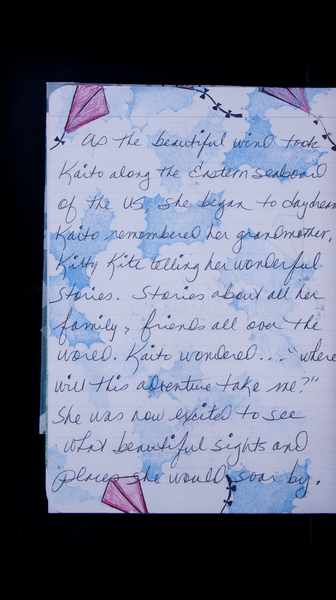 As the beautiful wind took
Kaito along the Eastern seaboard
of the US, she began to daydream
Kaito remembered her grandmother,
Kitty Kite telling her wonderful
stories. Stories about all her
family & friends all over the
world. Kaito wondered... "where
will this adventure take me?"
She was now excited to see
what beautiful sights and
places she would soar by.